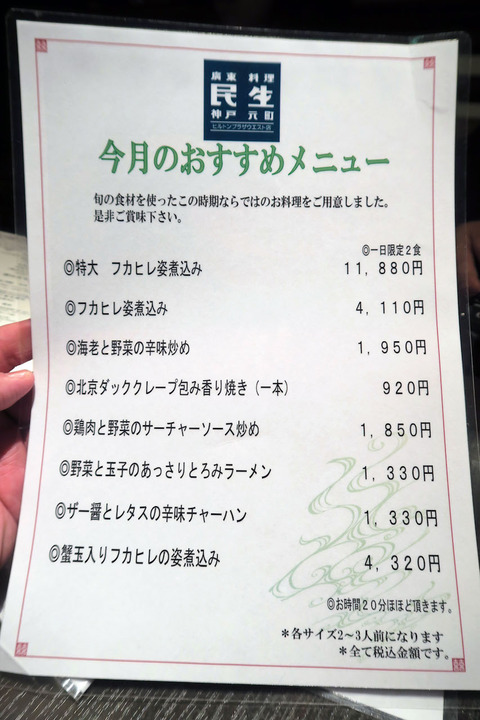 廣東料理
民生
神戸元町
ヒルトンプラザウエスト店
今月のおすすめメニュー
旬の食材を使ったこの時期ならではのお料理をご用意しました。
是非ご賞味下さい。
◎一日限定２食
◎特大　フカヒレ姿煮込み　１１，８８０円
◎フカヒレ姿煮込み　４，１１０円
◎海老と野菜の辛味炒め　１，９５０円
◎北京ダッククレープ包み香り焼き（一本）　９２０円
◎鶏肉と野菜のサーチャーソース炒め　１，８５０円
◎野菜と玉子のあっさりとろみラーメン　１，３３０円
◎ザー醤とレタスの辛味チャーハン　１，３３０円
◎蟹玉入りフカヒレの姿煮込み　４，３２０円
◎お時間２０分ほほど頂きます。
＊各サイズ２〜３人前になります
＊全て税込金額です。